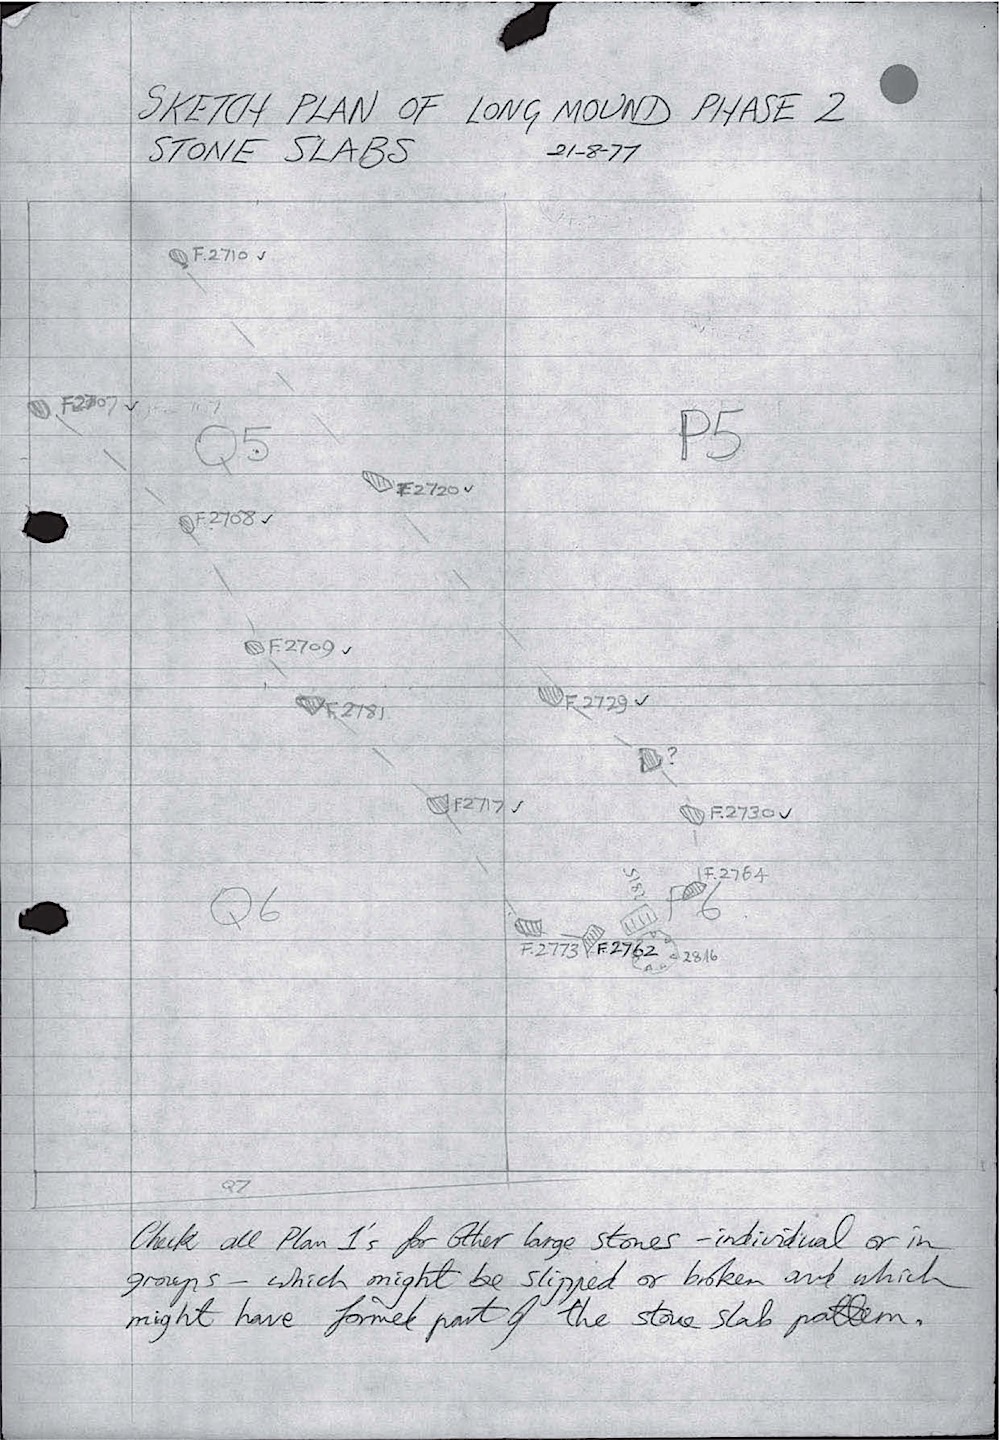 SKETCH PLAN OF LONG MOUND PHASE 2
STONE SLABS 21-8-77
F.2710 ✓
F2707 ✓
Q5
P5
F2720 ✓
F.2708 ✓
F.2709 ✓
F.2781
F.2729 ✓
?
F2717 ✓
F.2730 ✓
F.2764
5182
Q6
P6
F.2773
F.2762
2816
Q7
Check all Plan 1's for other large stones - individual or in
groups - which might be slipped or broken and which
might have formed part of the stone slab pattern.